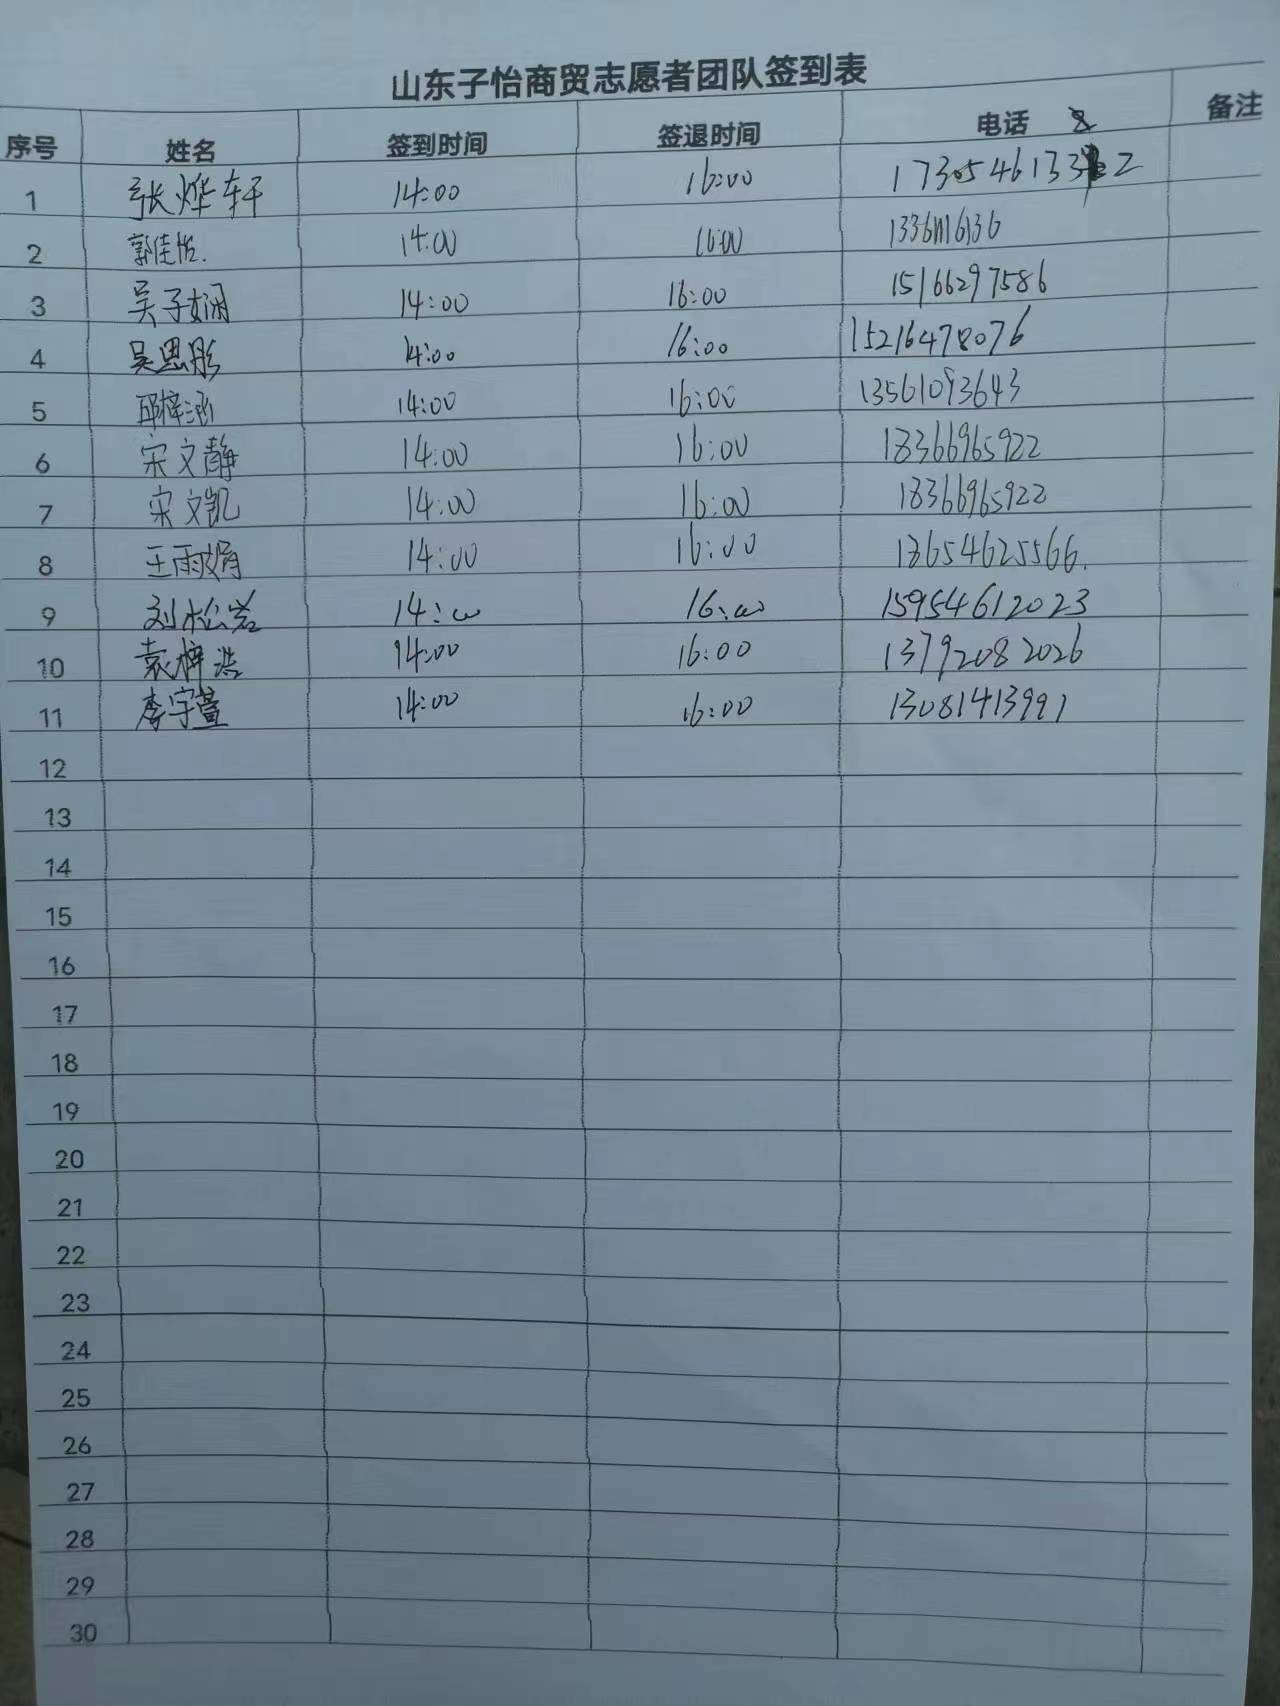 山东子怡商贸志愿者团队签到表
序号 姓名 签到时间 签退时间 电话 备注
1 张烨轩 14:00 16:00 8
2 郭佳悦. 14:00 16:00
3 吴子娴 14:00 16:00 15166297586
4 吴思彤 14:00 16:00 15216478076
5 邱梓涵 14:00 16:00 13561093643
6 宋文静 14:00 16:00 18366965922
7 宋文凯 14:00 16:00 18366965922
8 王雨娟 14:00 16:00 13654625566.
9 刘松岩 14:00 16:00 15954612023
10 袁梓浩 14:00 16:00 13792082026
11 李宇萱 14:00 16:00 13081413991
12
13
14
15
16
17
18
19
20
21
22
23
24
25
26
27
28
29
30